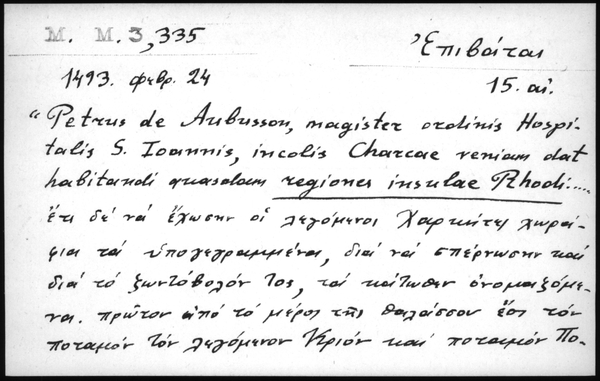 M. M. 3, 335
Ἐπιβάται
1493. φεβρ. 24
15. αἰ.
“Petrus de Aubusson, magister ordinis Hospi-
talis S. Ioannis, incolis Charcae veniam dat
habitandi quasdam regiones insulae Rhodi.....
ἔτι δὲ νὰ ἔχωσην οἱ λεγόμενοι Χαρκῖτες χωρά-
φια τὰ ὑπογεγραμμένα, διὰ νὰ σπέρνωσην καὶ
διὰ τὸ ζωντόβολόν τος, τὰ κάτωθεν ὀνομαζόμε-
να. πρῶτον ἀπὸ τὸ μέρος τῆς θαλάσσου ἕως τὸν
ποταμὸν τὸν λεγόμενον Κριὸν καὶ ποταμὸν Πο-